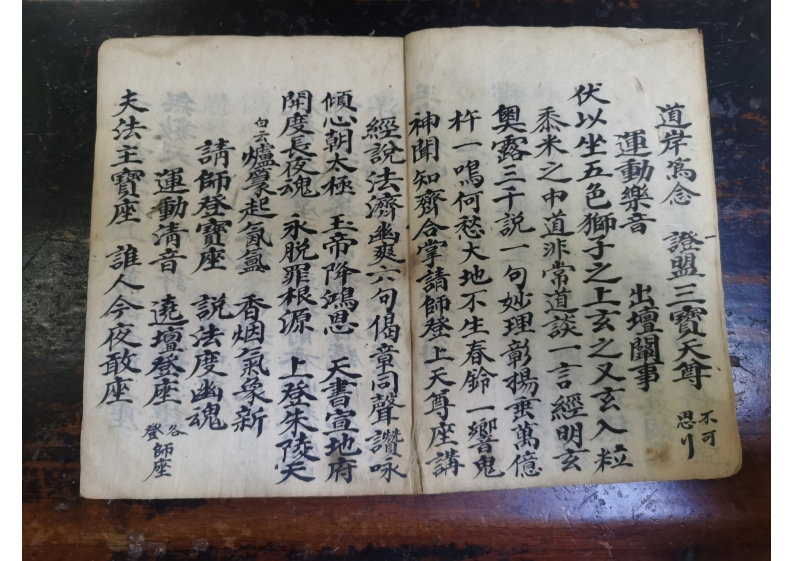 道岸為念 證盟三寶天尊 不可思
運動樂音 出壇闗事
伏以坐五色獅子之上玄之又玄入粒
黍米之中道非常道談一言經明玄
奥露三千説一句妙理彰揚垂萬億
杵一鳴何愁大地不生春鈴一響鬼
神聞知齊合掌請師登上天尊座講
經説法濟幽爽六句偈章同聲讚咏
傾心朝太極 玉帝降鴻恩 天書宣地府
開度長夜魂 永脱罪根源 上登朱陵天
白云 爐篆起氤氲 香烟氣象新
請師登寶座 説法度幽魂
運動清音 遶壇登座 各登師座
夫法主寶座 誰人今夜敢座